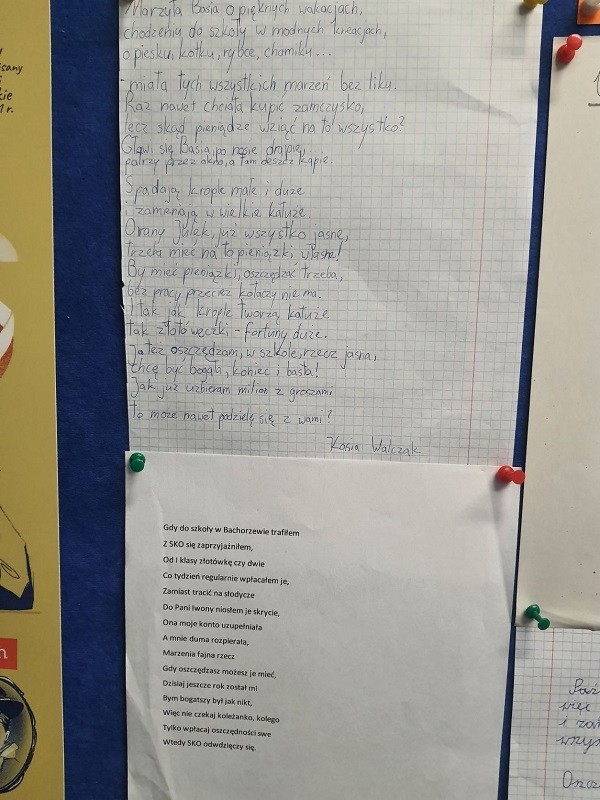 Marzyła Basia o pięknych wakacjach,
chodzeniu do szkoły w modnych kreacjach,
o piesku, kotku, rybce, chomiku...
- miała tych wszystkich marzeń bez liku.
Raz nawet chciała kupić zamczysko,
lecz skąd pieniądze wziąć na to wszystko?
Głowi się Basia, po nosie drapie,
patrzy przez okno, a tam deszcz kapie.
Spadają krople małe i duże
i zamieniają w wielkie kałuże.
O rany Julek, już wszystko jasne,
trzeba mieć na to pieniążki własne!
By mieć pieniążki, oszczędzać trzeba,
bez pracy przecież kołaczy nie ma.
I tak jak krople tworzą kałuże
tak złotóweczki - fortuny duże.
Ja też oszczędzam, w szkole, rzecz jasna,
chcę być bogata, koniec i basta!
Jak już uzbieram milion z groszami
to może nawet podzielę się z wami?
Kasia Walczak
Gdy do szkoły w Bachorzewie trafiłem
Z SKO się zaprzyjaźniłem,
Od I klasy złotówkę czy dwie
Co tydzień regularnie wpłacałem je,
Zamiast tracić na słodycze
Do Pani Iwony niosłem je skrycie,
Ona moje konto uzupełniała
A mnie duma rozpierała,
Marzenia fajna rzecz
Gdy oszczędzasz możesz je mieć,
Dzisiaj jeszcze rok został mi
Bym bogatszy był jak nikt,
Więc nie czekaj koleżanko, kolego
Tylko wpłacaj oszczędności swe
Wtedy SKO odwdzięczy się.
więc